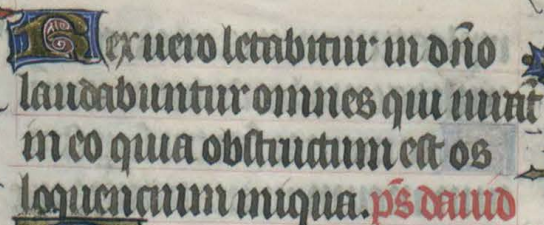 Rex uero letabitur in dño
laudabuntur omnes qui iurãt
in eo quia obstructum est os
loquencium iniqua. pš dauid